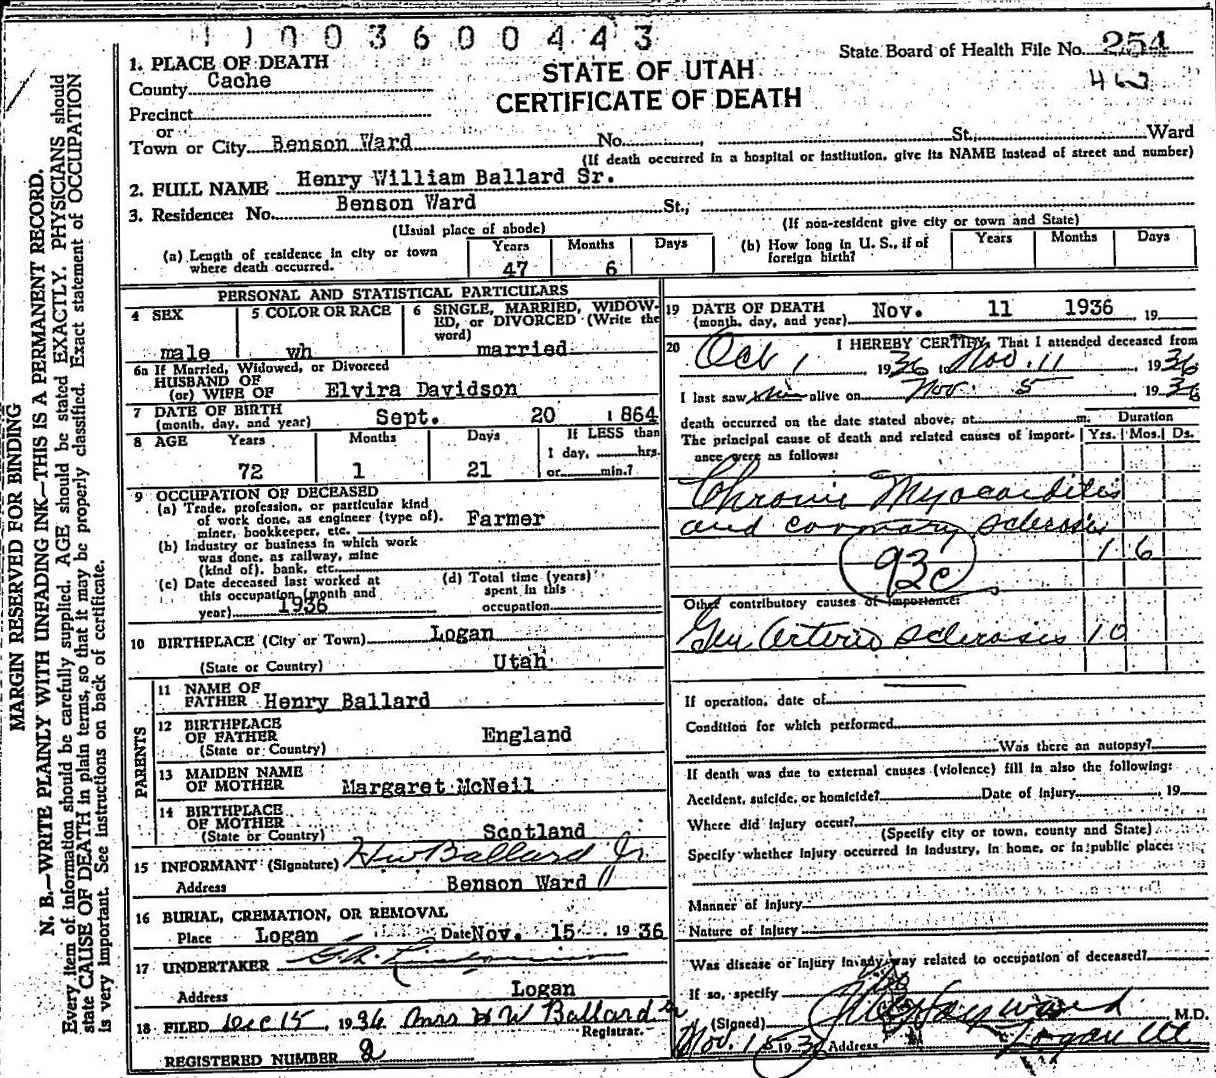 11003600443
State Board of Health File No. 254
STATE OF UTAH
CERTIFICATE OF DEATH
1. PLACE OF DEATH
County Cache
Precinct
or
Town or City Benson Ward No. St. Ward
(If death occurred in a hospital or institution, give its NAME instead of street and number)
2. FULL NAME Henry William Ballard Sr.
3. Residence: No. Benson Ward St.,
(Usual place of abode) (If non-resident give city or town and State)
(a) Length of residence in city or town where death occurred. Years 47 Months 6 Days
(b) How long in U. S., if of foreign birth? Years Months Days
PERSONAL AND STATISTICAL PARTICULARS
4 SEX male
5 COLOR OR RACE wh
6 SINGLE, MARRIED, WIDOWED, or DIVORCED (Write the word) married
6a If Married, Widowed, or Divorced
HUSBAND OF
(or) WIFE OF Elvira Davidson
7 DATE OF BIRTH
(month, day, and year) Sept. 20 1864
8 AGE Years 72 Months 1 Days 21
If LESS than
1 day, hrs.
or min.?
9 OCCUPATION OF DECEASED
(a) Trade, profession, or particular kind
of work done, as engineer (type of).
miner, bookkeeper, etc. Farmer
(b) Industry or business in which work
was done, as railway, mine
(kind of). bank, etc.
(c) Date deceased last worked at
this occupation (month and
year) 1936
(d) Total time (years)
spent in this
occupation
10 BIRTHPLACE (City or Town) Logan
(State or Country) Utah
PARENTS
11 NAME OF
FATHER Henry Ballard
12 BIRTHPLACE
OF FATHER
(State or Country) England
13 MAIDEN NAME
OF MOTHER Margaret McNeil
14 BIRTHPLACE
OF MOTHER
(State or Country) Scotland
15 INFORMANT (Signature) HW Ballard Jr
Address Benson Ward
16 BURIAL, CREMATION, OR REMOVAL
Place Logan Date Nov. 15 1936
17 UNDERTAKER
Address Logan
18 FILED Dec 15, 1936 Mrs H W Ballard
Registrar.
REGISTERED NUMBER 2
19 DATE OF DEATH
(month, day, and year) Nov. 11 1936, 19
20 I HEREBY CERTIFY, That I attended deceased from
Oct 1, 1936 to Nov. 11, 1936
I last saw him alive on Nov. 5 1936
death occurred on the date stated above, at m.
The principal cause of death and related causes of importance were as follows:
Duration
Yrs. Mos. Ds.
Chronic Myocarditis
and coronary sclerosis
1 6
93c
Other contributory causes of importance:
Gen Arterio sclerosis 10
If operation, date of
Condition for which performed
Was there an autopsy?
If death was due to external causes (violence) fill in also the following:
Accident, suicide, or homicide? Date of injury , 19
Where did injury occur?
(Specify city or town, county and State)
Specify whether injury occurred in industry, in home, or in public place:
Manner of Injury
Nature of Injury
Was disease or injury in any way related to occupation of deceased? No
If so, specify
(Signed) Hayward M.D.
Nov. 15 1936 Address Logan Ut
MARGIN RESERVED FOR BINDING
N. B.—WRITE PLAINLY WITH UNFADING INK—THIS IS A PERMANENT RECORD.
Every item of information should be carefully supplied. AGE should be stated EXACTLY. PHYSICIANS should
state CAUSE OF DEATH in plain terms, so that it may be properly classified. Exact statement of OCCUPATION
is very important. See instructions on back of certificate.